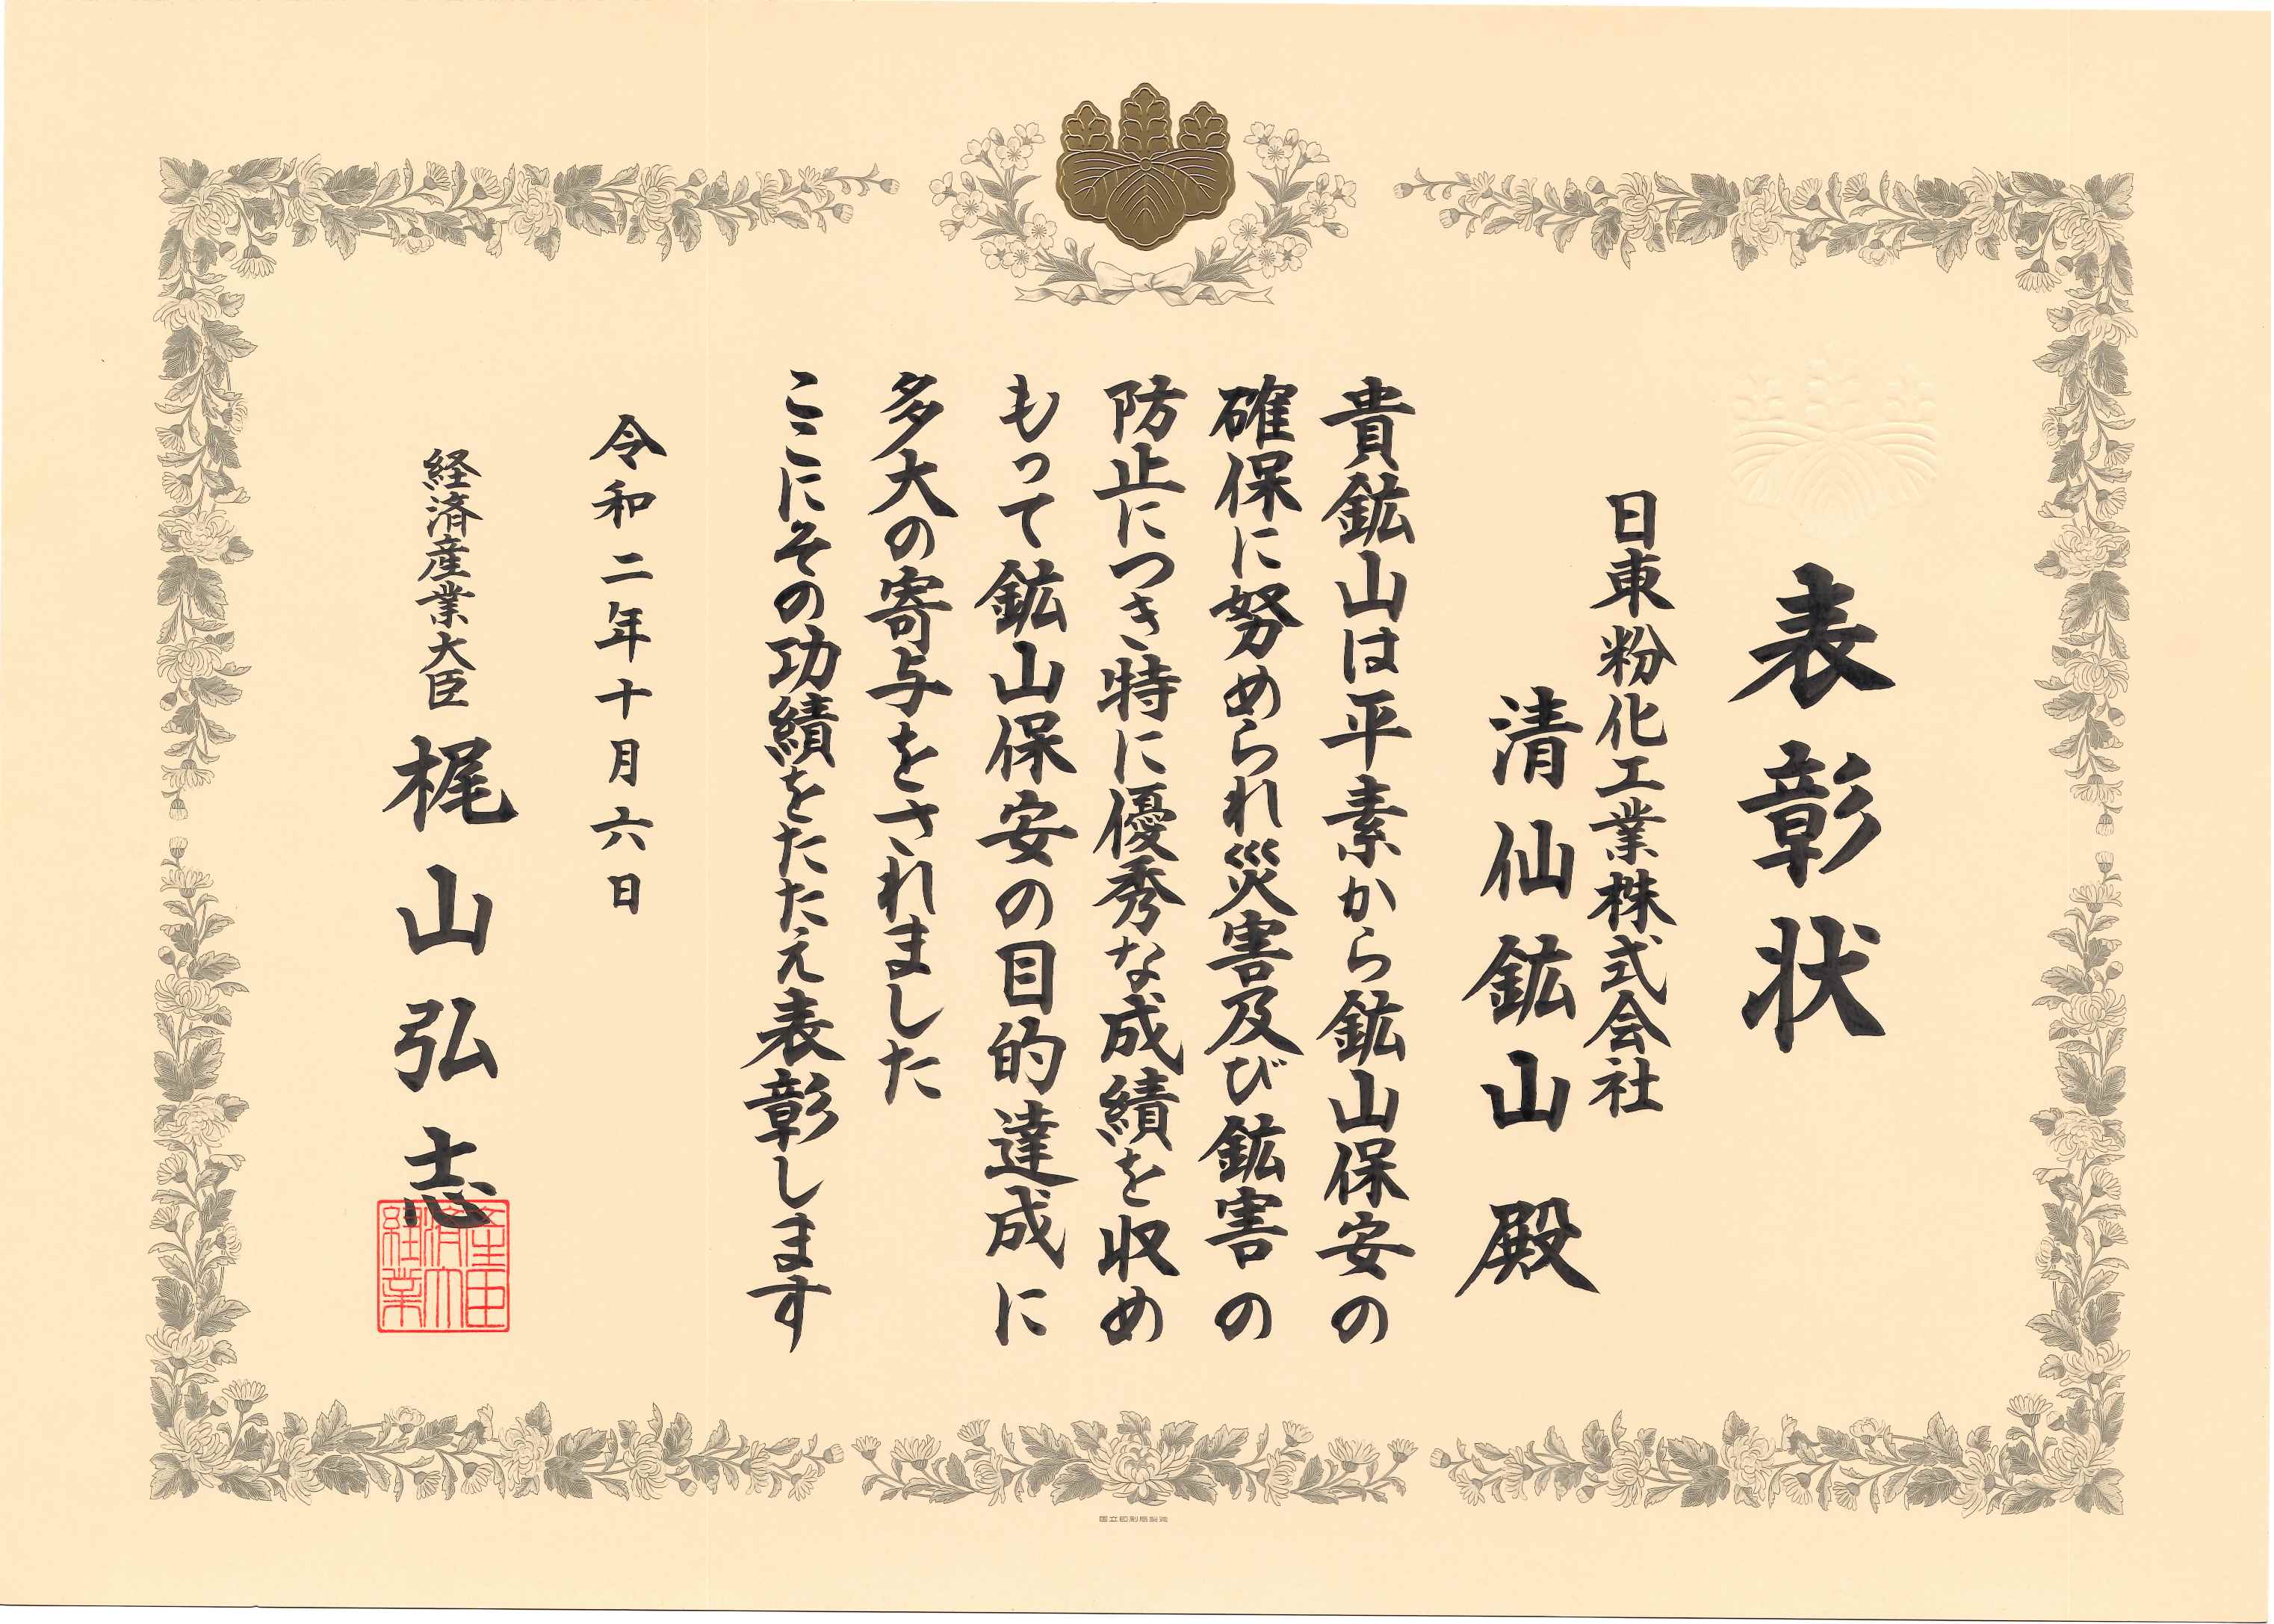 表彰状
日東粉化工業株式会社
清仙鉱山殿
貴鉱山は平素から鉱山保安の
確保に努められ災害及び鉱害の
防止につき特に優秀な成績を収め
もって鉱山保安の目的達成に
多大の寄与をされました
ここにその功績をたたえ表彰します
令和二年十月六日
経済産業大臣 梶山弘志
経済産業大臣
国立印刷局製造